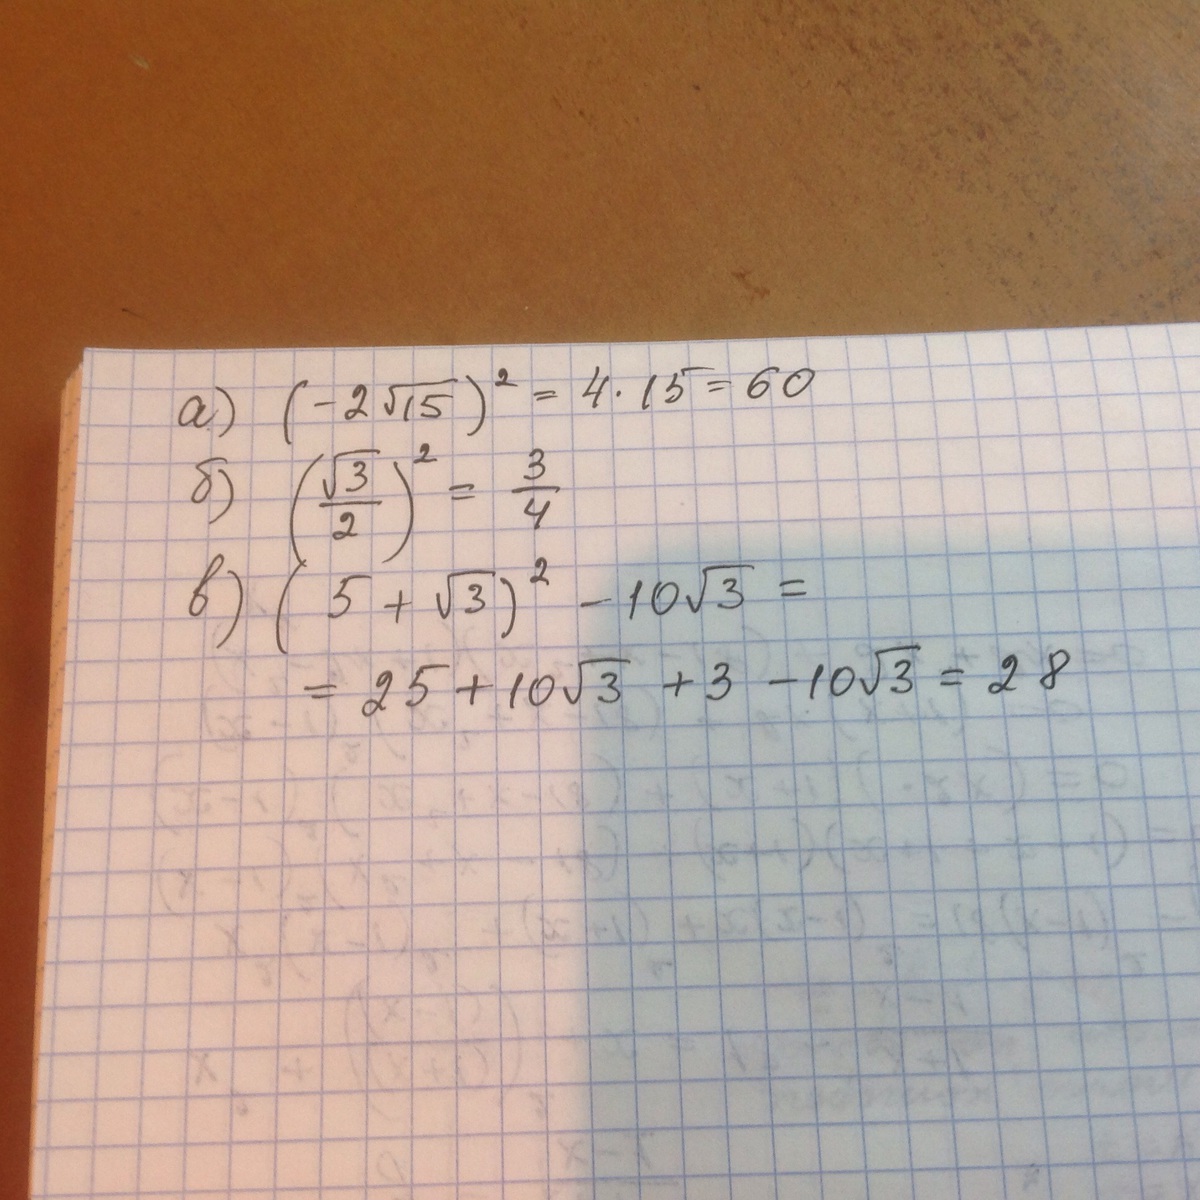 а) (-2√15)² = 4·15 = 60
б) (√3/2)² = 3/4
в) (5 + √3)² - 10√3 =
= 25 + 10√3 + 3 - 10√3 = 28